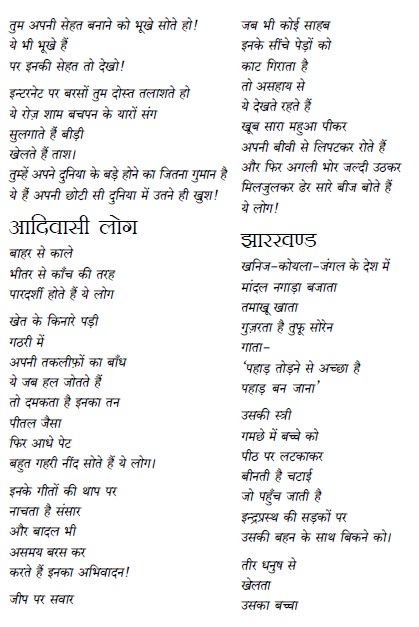 तुम अपनी सेहत बनाने को भूखे सोते हो!
ये भी भूखे हैं
पर इनकी सेहत तो देखो!
इन्टरनेट पर बरसों तुम दोस्त तलाशते हो
ये रोज़ शाम बचपन के यारों संग
सुलगाते हैं बीड़ी
खेलते हैं ताश।
तुम्हें अपने दुनिया के बड़े होने का जितना गुमान है
ये हैं अपनी छोटी सी दुनिया में उतने ही खुश!
आदिवासी लोग
बाहर से काले
भीतर से काँच की तरह
पारदर्शी होते हैं ये लोग
खेत के किनारे पड़ी
गठरी में
अपनी तकलीफ़ों का बाँध
ये जब हल जोतते हैं
तो दमकता है इनका तन
पीतल जैसा
फिर आधे पेट
बहुत गहरी नींद सोते हैं ये लोग।
इनके गीतों की थाप पर
नाचता है संसार
और बादल भी
असमय बरस कर
करते हैं इनका अभिवादन!
जीप पर सवार
जब भी कोई साहब
इनके सींचे पेड़ों को
काट गिराता है
तो असहाय से
ये देखते रहते हैं
खूब सारा महुआ पीकर
अपनी बीवी से लिपटकर रोते हैं
और फिर अगली भोर जल्दी उठकर
मिलजुलकर ढेर सारे बीज बोते हैं
ये लोग!
झारखण्ड
खनिज-कोयला-जंगल के देश में
मांदल नगाड़ा बजाता
तमाखू खाता
गुज़रता है तुफू सोरेन
गाता-
‘पहाड़ तोड़ने से अच्छा है
पहाड़ बन जाना’
उसकी स्त्री
गमछे में बच्चे को
पीठ पर लटकाकर
बीनती है चटाई
जो पहुँच जाती है
इन्द्रप्रस्थ की सड़कों पर
उसकी बहन के साथ बिकने को।
तीर धनुष से
खेलता
उसका बच्चा